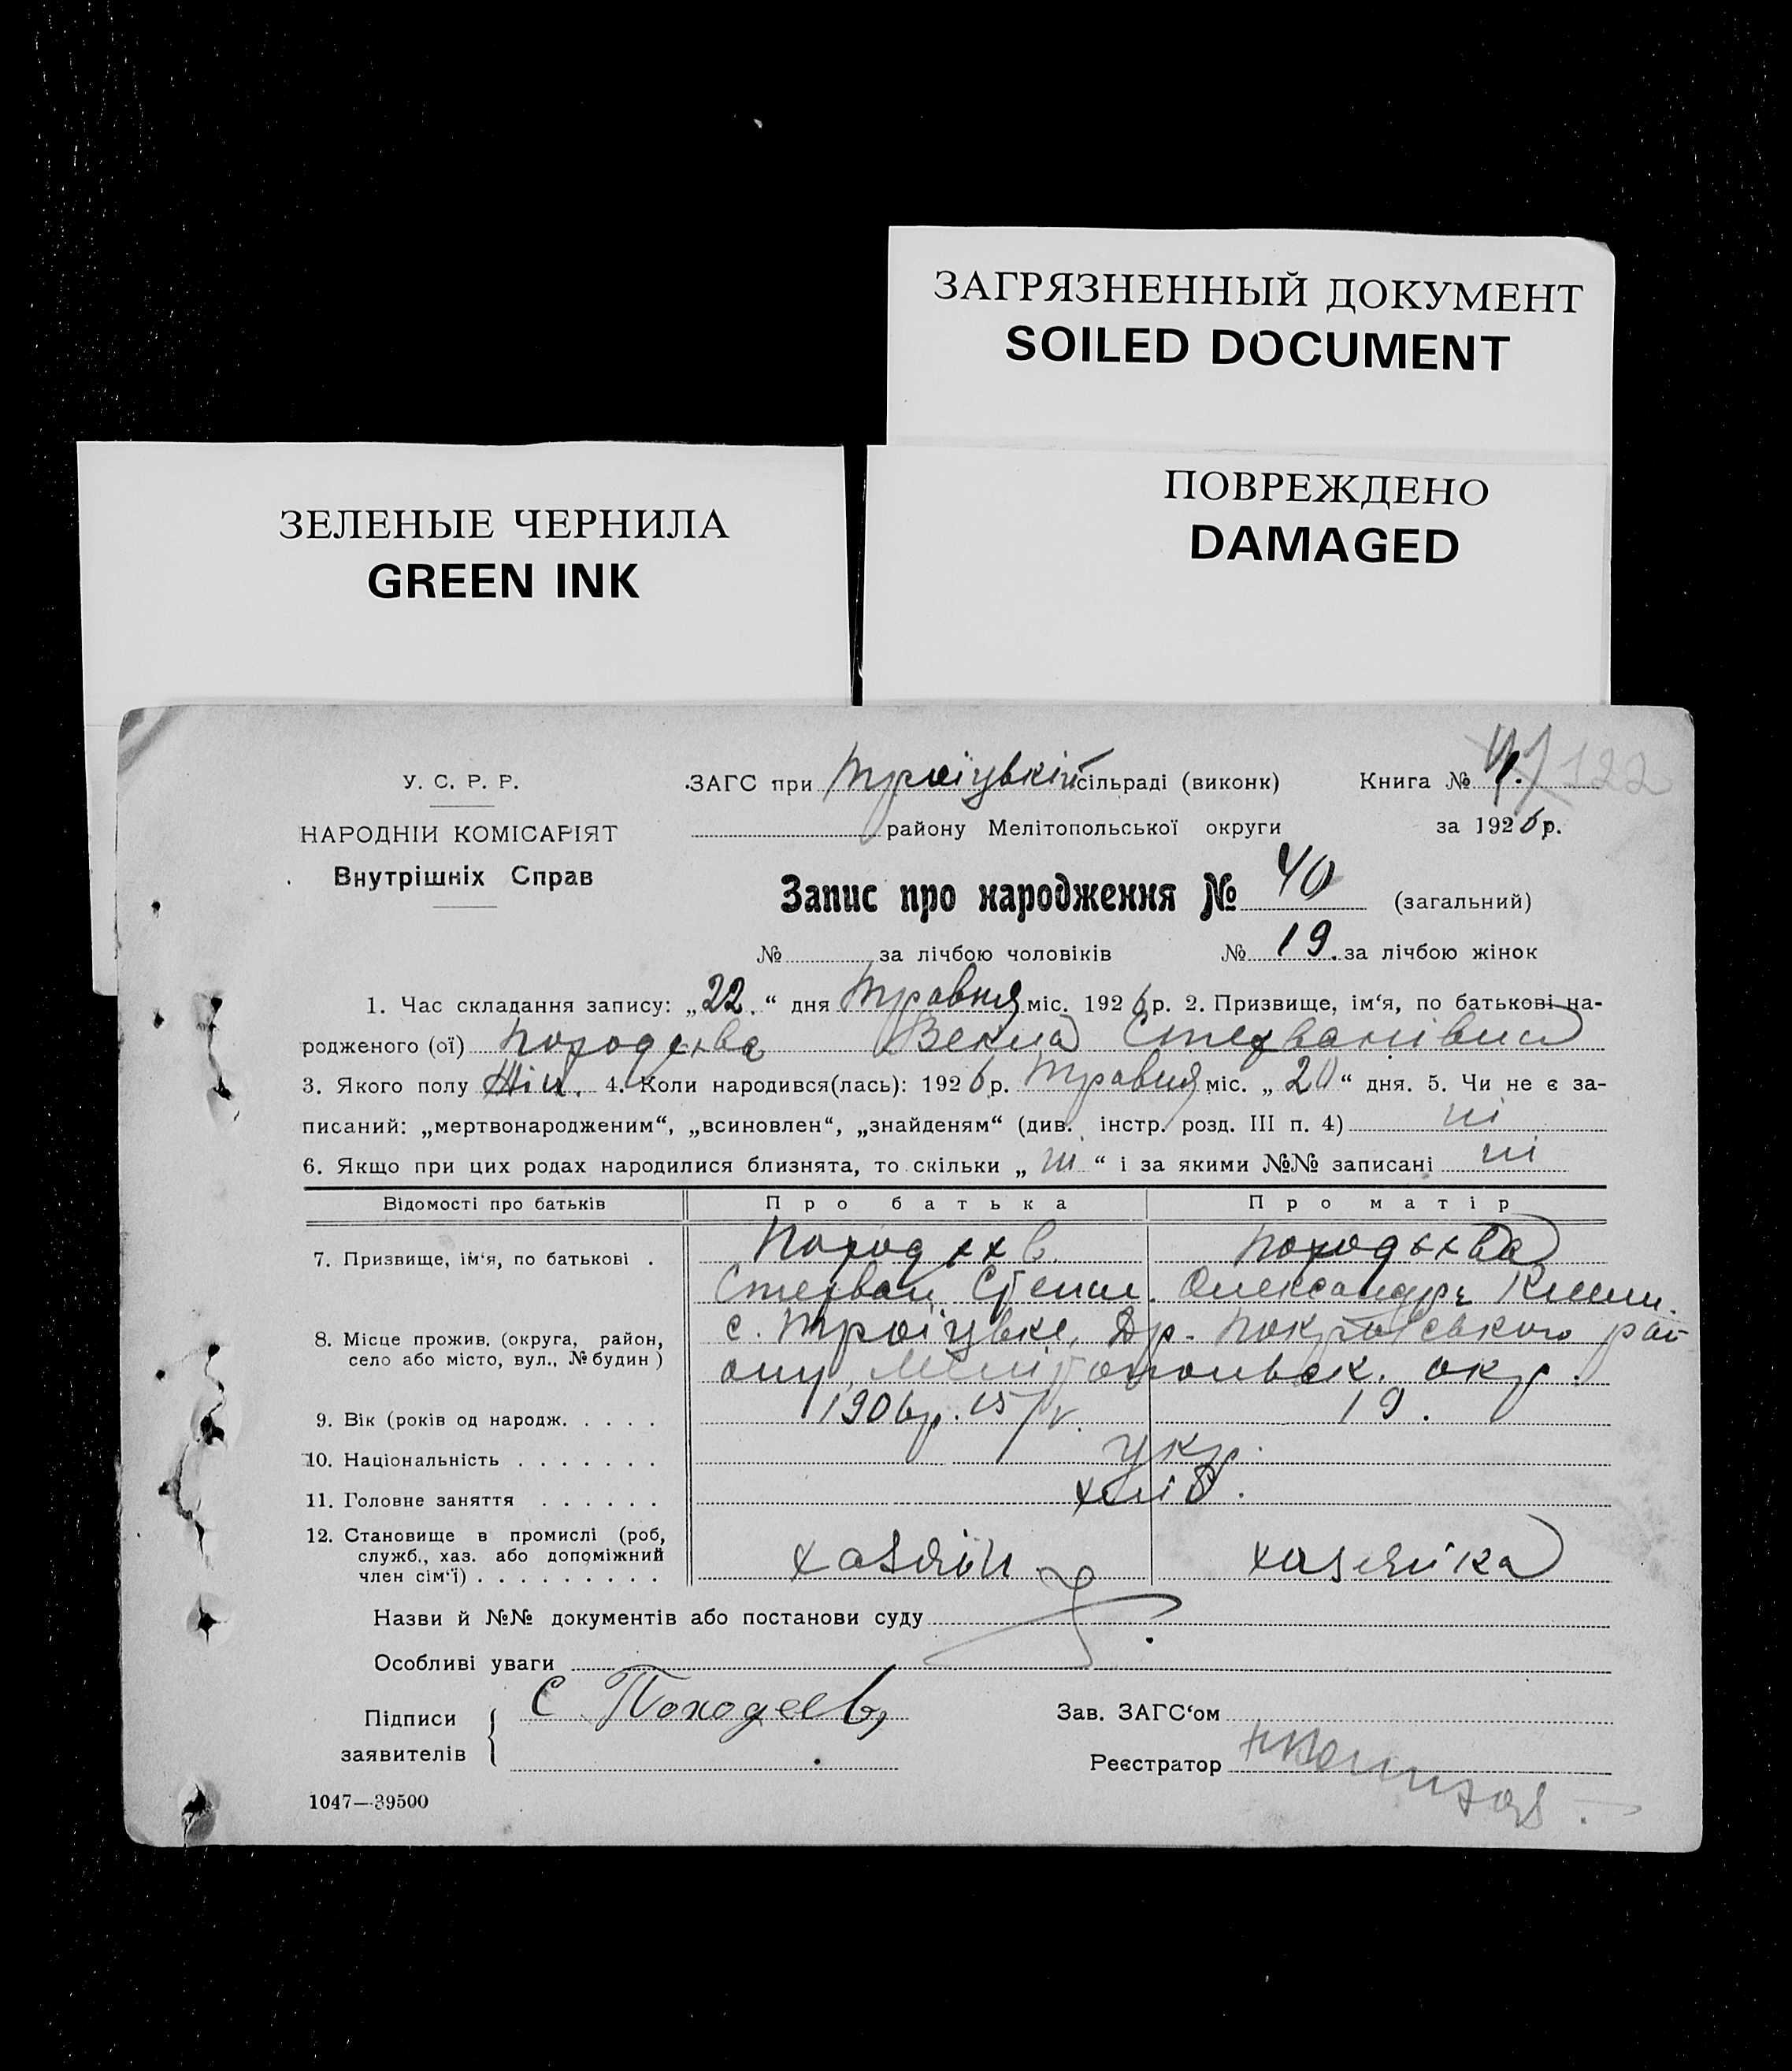 ЗАГРЯЗНЕННЫЙ ДОКУМЕНТ
SOILED DOCUMENT
ЗЕЛЕНЫЕ ЧЕРНИЛА
GREEN INK
ПОВРЕЖДЕНО
DAMAGED
У. С. Р. Р.
НАРОДНІИ КОМІСАРІЯТ
Внутрішніх Справ
ЗАГС при Троїцькій сільраді (виконк) Книга № 122
району Мелітопольської округи за 1926 р.
Запис про народження № 40 (загальний)
№ за лічбою чоловіків № 19. за лічбою жінок
1. Час складання запису: „22.“ дня Травня міс. 1926 р. 2. Призвище, ім‘я, по батькові на-
родженого (ої) Векла Стехванівна
3. Якого полу Жін. 4. Коли народився(лась): 1926 р. Травня міс. „20“ дня. 5. Чи не є за-
писаний: „мертвонародженим“, „всиновлен“, „знайденям“ (див. інстр. розд. III п. 4) ні
6. Якщо при цих родах народилися близнята, то скільки „ні“ і за якими №№ записані ні
Відомості про батьків Про батька Про матір
7. Призвище, ім‘я, по батькові .
Стехван Степ. Олександра Клим.
8. Місце прожив. (округа, район, село або місто, вул., № будин) с. Троїцьке, Др. Покровського рай-
ону, Мелітопольск. окр.
9. Вік (років од народж. . . . . 1906 р. 15/V. 19.
10. Національність . . . . . . . укр.
11. Головне заняття . . . . . . хліб.
12. Становище в промислі (роб,
служб., хаз. або допоміжний
член сім‘ї) . . . . . . . . . хазяїн хазяйка
Назви й №№ документів або постанови суду
Особливі уваги
Підписи заявителів С Походеев
Зав. ЗАГС‘ом
Реєстратор
1047—39500